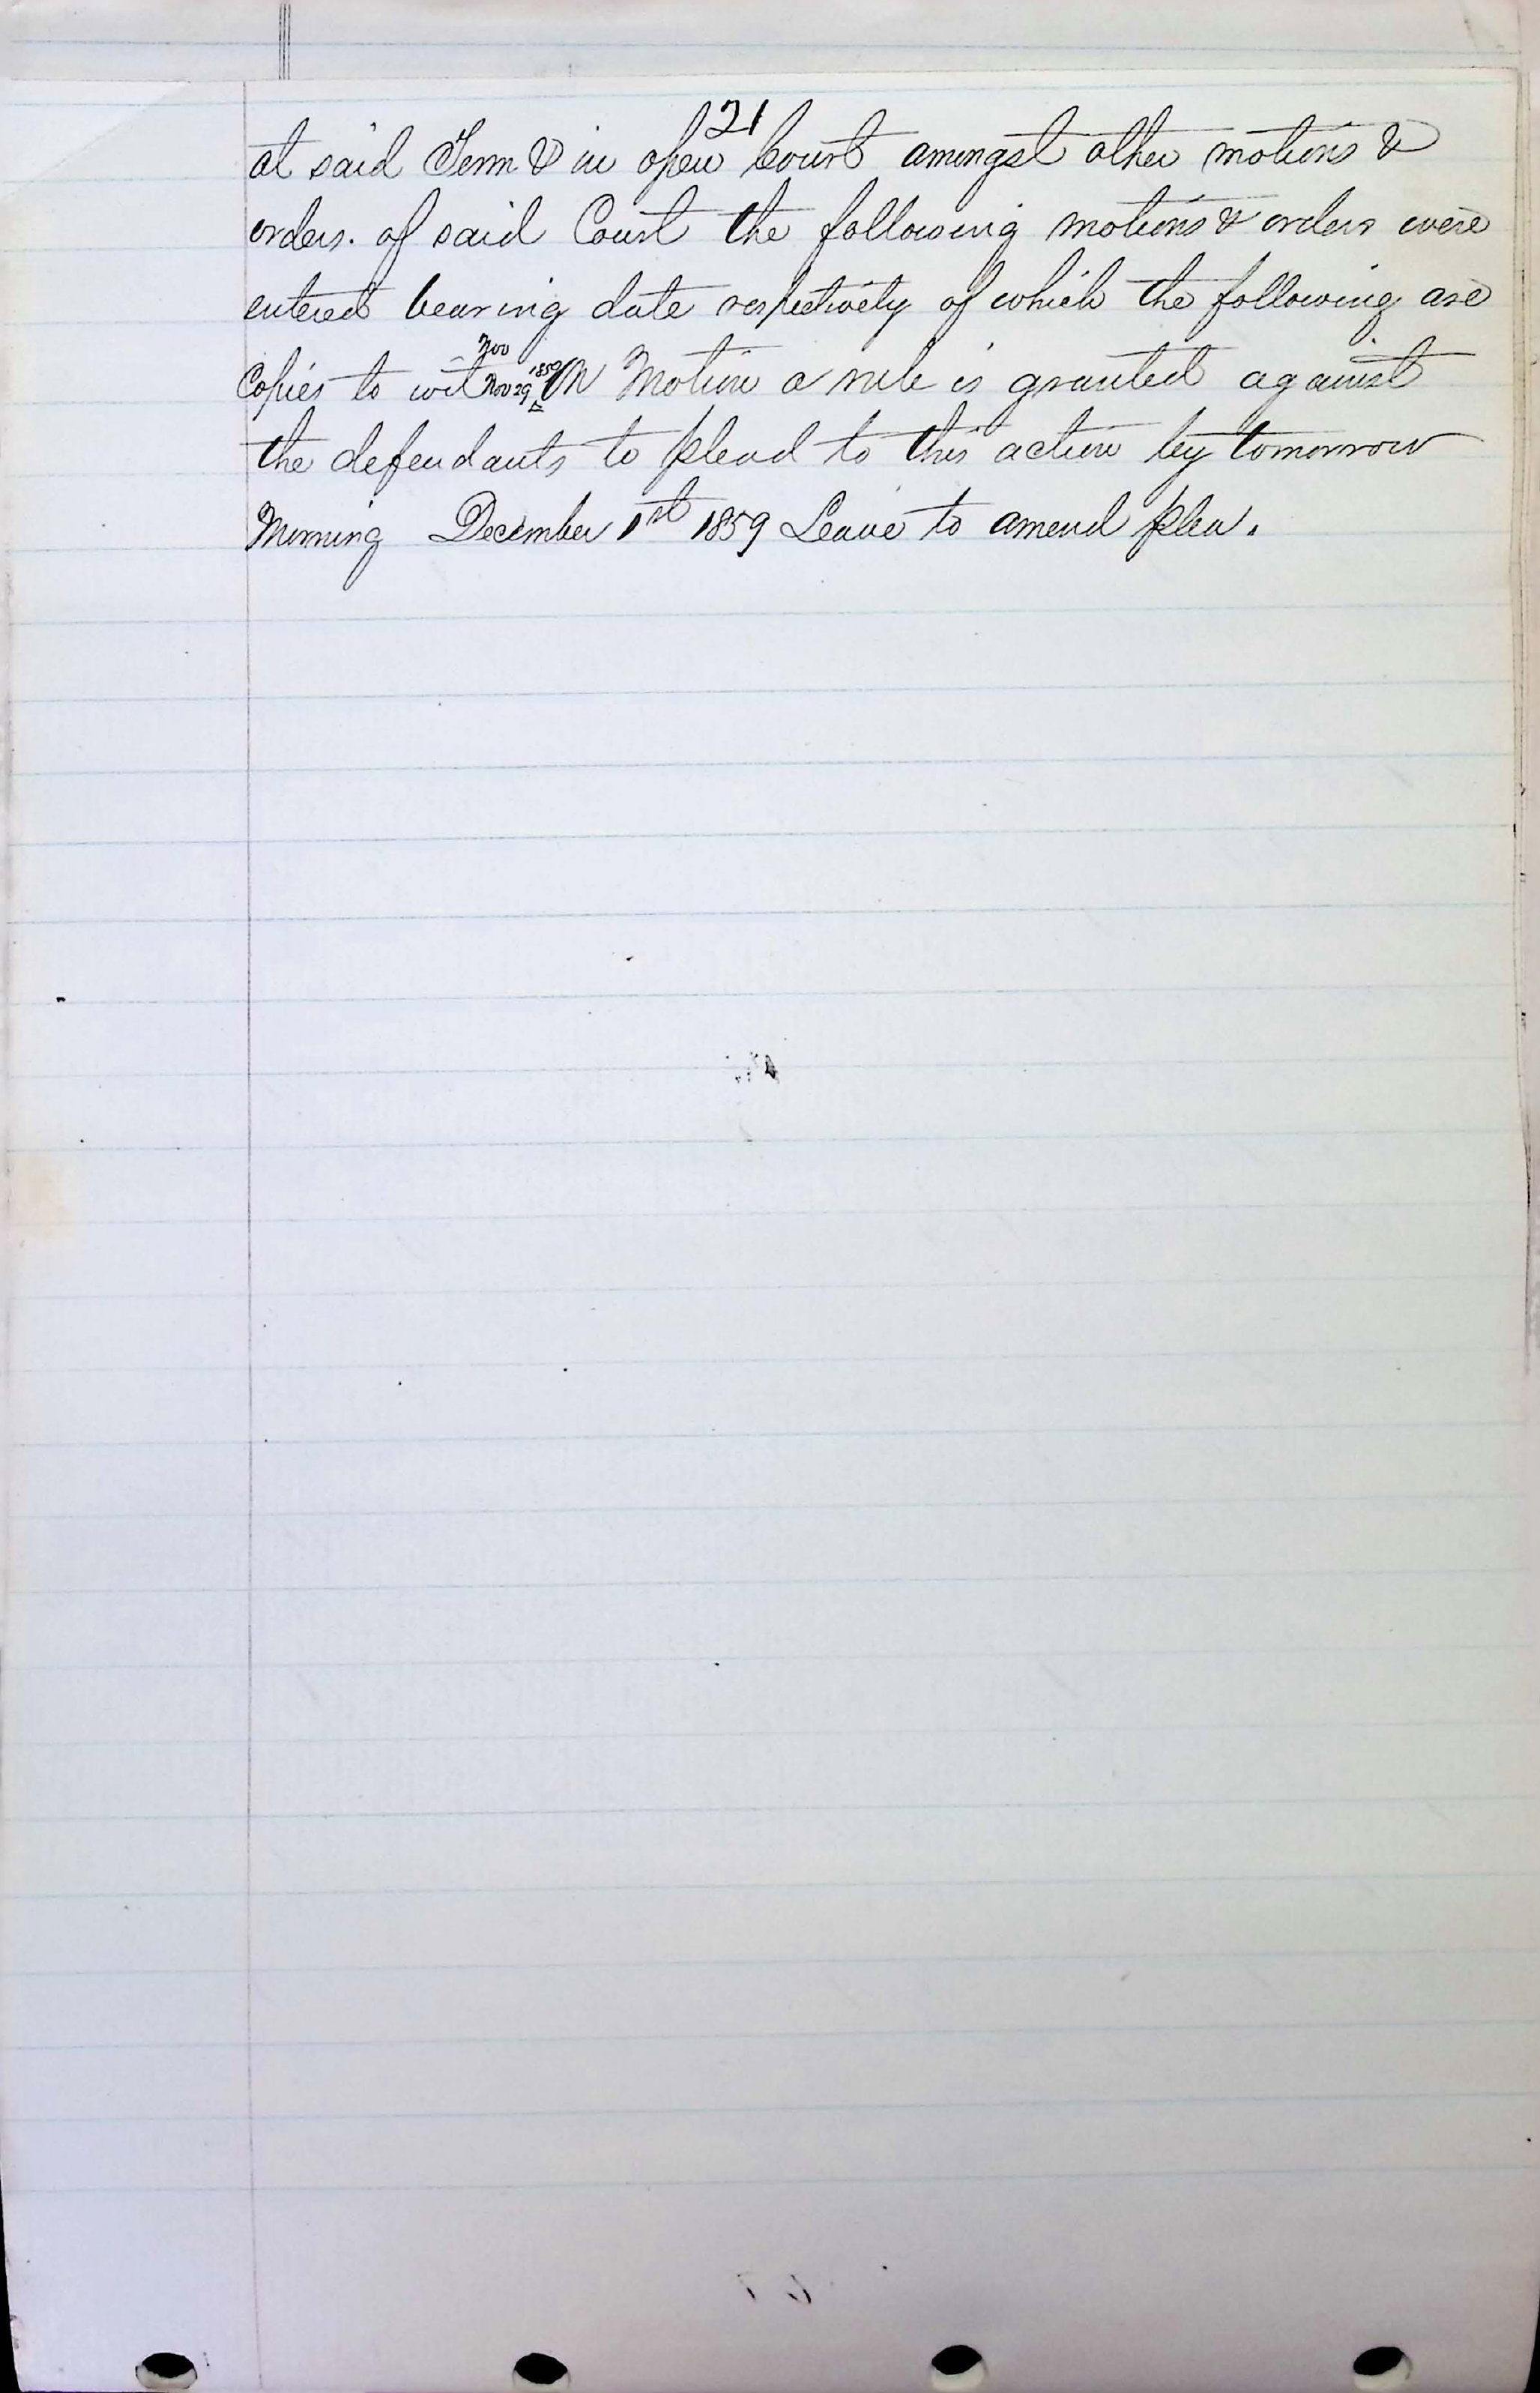 21
at said Term & in open Court amongst other motions &
orders. of said Court the following motions & orders were
entered bearing date respectively of which the following are
Nov
Copies to wit Nov 29 1859 On Motion a rule is granted against
the defendants to plead to this action by tomorrow
Morning December 1st 1859 Leave to amend plea.